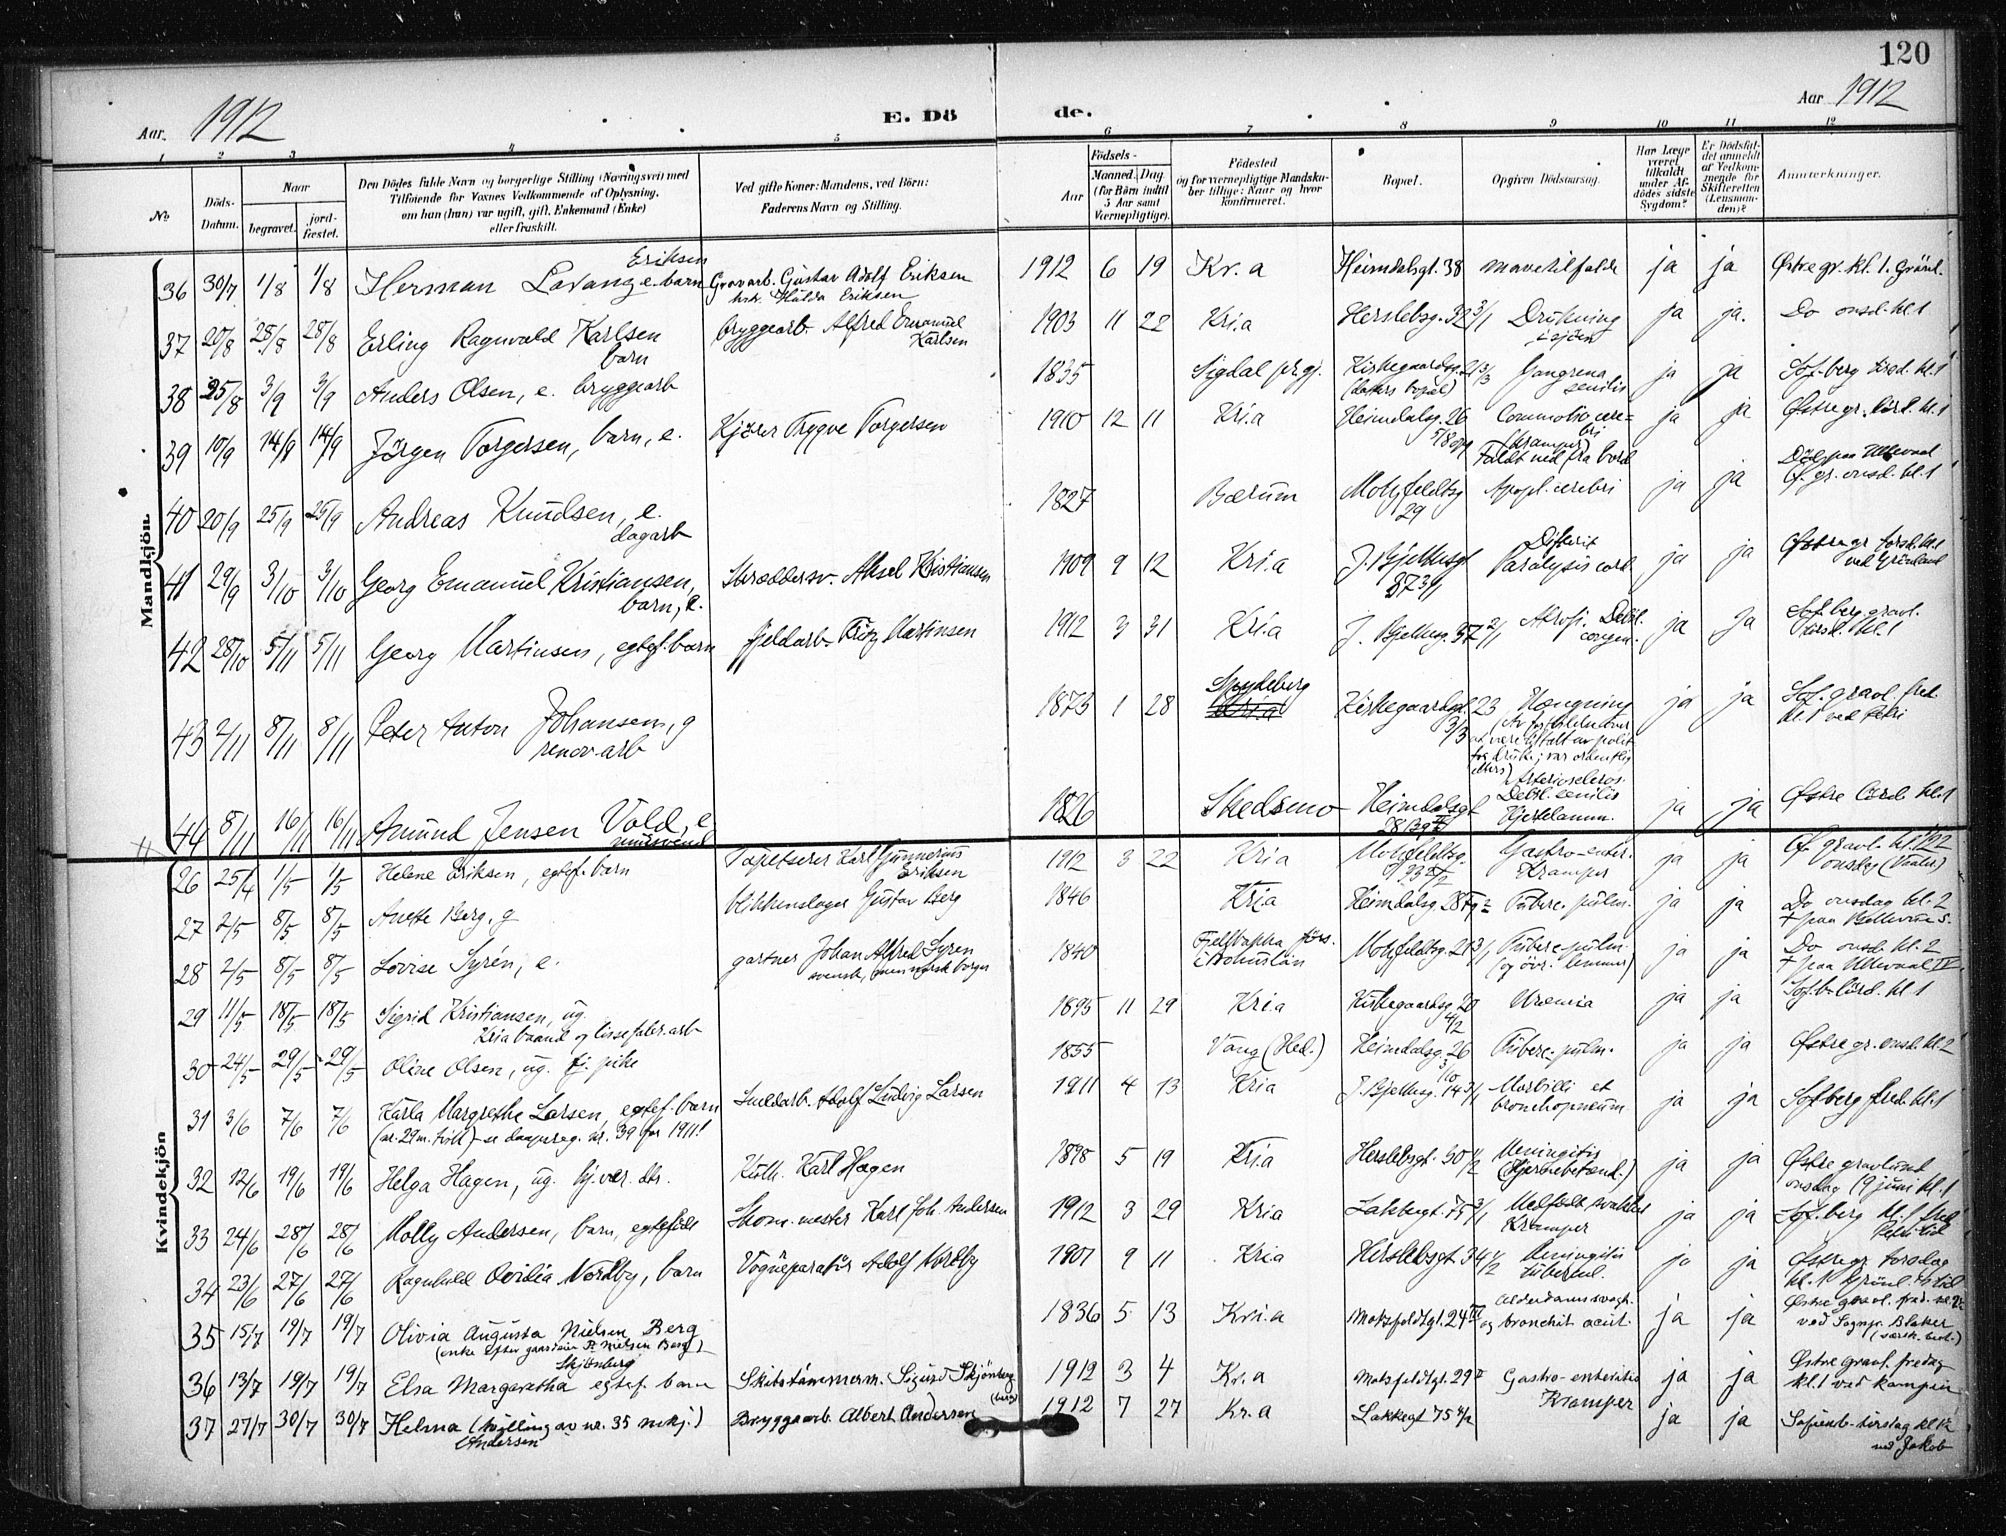 120
Aar. 1912
E. Dö de.
Aar 1912
1 2 3 4 5 6 7 8 9 10 11 12
No
Döds-Datum.
Naar
begravet.
jord-fæstet.
Den Dödes fulde Navn og borgerlige Stilling (Næringsvei) med
Tilföiende for Voxnes Vedkommende af Oplysning,
om han (hun) var ugift, gift, Enkemand (Enke)
eller fraskilt.
Ved gifte Koner: Mandens, ved Börn:
Faderens Navn og Stilling.
Aar
Födsels-
Maaned. Dag
(for Börn indtil
5 Aar samt
Værnepligtige).
Födested
og for værnepligtige Mandsku-
ber tillige: Naar og hvor
konfirmeret.
Bopæl.
Opgiven Dödsaarsag.
Har Læge
været
tilkaldt
under Af-
dödes sidste
Sygdom?
Er Dödsfal-
det anmeldt
af Vedkom-
mende for
Skifteretten
(Lensman-
den)?
Anmærkninger.
Mandkjön.
36 30/7 1/8 1/8 Herman Lavang Eriksen e. barn Gravarb. Gustav Adolf Eriksen Hulda Eriksen 1912 6 19 Kr.a Heimdalsgt. 38 mavetilfælde ja ja Østre gr. kl. 1. Grönl.
37 20/8 28/8 28/8 Erling Ragnvald Karlsen barn bryggearb. Alfred Emanuel Karlsen 1903 11 22 Kri.a Herslebsg. 32 3/1 Drukning i sjöen ja ja. Do onsd. kl. 1
38 25/8 3/9 3/9 Anders Olsen, e. bryggearb 1835 Sigdal prgj. Kirkegaardsg. 21 3/3 (datters bopæl) Gangrena senilis ja ja Sof. berg tirsd. kl. 1
39 10/9 14/9 14/9 Jörgen Torgersen, barn, e. Kjører Trygve Torgersen 1910 12 11 Kri.a Heimdalsg. 26 5/8 opg Commotio cerebri (kramper) Faldt ned fra bord ja ja Østre gr. lörd. kl. 1
40 20/9 25/9 25/9 Andreas Knudsen, e. dagarb 1827 Bærum Motzfeldtsg 29 Apopl. cerebri ja ja Död paa Ullevaal Ø. gr. onsd. kl. 1
41 29/9 3/10 3/10 Georg Emanuel Kristiansen, barn, e. Skræddersv. Aksel Kristiansen 1909 9 12 Kri.a J. Bjelkesgt 87 3/1 Difterit Paralysis cord. ja ja Østre gr. torsd. kl. 1 ved Grönland
42 28/10 5/11 5/11 Georg Martinsen, egtef. barn fjeldarb. Fritz Martinsen 1912 3 31 Kri.a J. Bjelkesg. 57 2/1 Atrofi. Debil. congen. ja ja Sof. berg gravl. tirsd. kl. 1
43 2/11 8/11 8/11 Peter Anton Johansen, g renov. arb 1873 1 28 Spydeberg Kirkegaardsgt. 23 3/3 Hængning ja ja Sof. gravl. fred. kl. 1 ved Petri
44 8/11 16/11 16/11 Amund Jensen Vold, e. mursvend 1826 Skedsmo Heimdalsgt Arterioscleros. Debil. senilis Hjertelamm. ja ja Østre lörd. kl. 1
Kvindekjön
26 25/4 1/5 1/5 Helene Eriksen, egtef. barn Tapetserer Karl Gunnerius Eriksen 1912 3 22 Kria Motzfeldtsg. Gastro-enter. Kramper ja ja Ø. gravl. onsdag
27 2/5 8/5 8/5 Anette Berg, g blikkenslager Gustav Berg 1846 Kria Heimdalsg. Tuberc. pulm. ja ja Do onsdag kl. 2
28 2/5 8/5 8/5 Lovise Syrén, e. gartner Johan Alfred Syren svensk, men norsk borger 1840 Fjelbakka förs. i Bohuslän Motzfeldtsg. 21 3/1 Tuberc. pulm. ja ja Do onsd. kl. 2 + paa Ullevaal
29 11/5 18/5 18/5 Sigrid Kristiansen, ug. Kria baand og lissefabr. arb 1895 11 29 Kria Kirkegaardsg. 20 4/2 Uræmia ja ja Sof. b. lörd. kl 1
30 24/5 29/5 29/5 Oline Olsen, ug. tj. pike 1855 Vang (Hed.) Heimdalsg. 26 Tuberc. pulm. ja ja Østre gr. onsd. kl. 2
31 3/6 7/6 7/6 Karla Margrethe Larsen, egtef. barn (nr. 29 m. tvill) - se daapsreg. nr. 39 for 1911! Adolf Ludvig Larsen 1911 4 13 Kria J. Bjelkesg. 14 3/1 Morbilli et bronchopneum. ja ja Sof. berg fred. kl. 1
32 12/6 19/6 19/6 Helga Hagen, ug. hj. vær. dtr. Kusk. Karl Hagen 1898 5 19 Kria Herslebsgt. 30 1/2 Meningitis (Hjernebetænd.) ja ja Østre gravlund onsdag 19 juni kl. 1
33 24/6 28/6 28/6 Molly Andersen, barn, egtefödt Skom. mester Karl Joh. Andersen 1912 3 29 Kria Lakkegt. 75 3/1 Kramper ja ja Sof. berg kl. 1 fred
34 23/6 27/6 27/6 Ragnhild Ovidia Nordby, barn Vognreparatör Adolf Nordby 1907 9 11 Kria Herslebsgt 34 4/2 Meningitis tubercul. ja ja Østre gr. torsdag
35 15/7 19/7 19/7 Olivia Augusta Nielsen Berg (enke efter gaardeier P. Nielsen Berg) 1836 5 13 Kri.a Motzfeldtgt. 24 IV Alderdomssvagh. og bronchit acut. ja ja Østre gravl. fred. ved Sogнpr. Blaker
36 13/7 19/7 19/7 Elsa Margaretha Skjönberg egtef. barn Sigurd Skjönberg 1912 3 4 Kr.a Motzfeldtgt. 29 I Gastro-enteritis Kramper ja ja Østre gravl. fredag kl. 1 ved Kampen
37 27/7 30/7 30/7 Helma (tvilling av nr. 35 mkj.) Andersen Bryggearb. Albert Andersen 1912 7 27 Kr.a Lakkegt 75 4/2 ja ja Sofienb. tirsdag ved Jakob